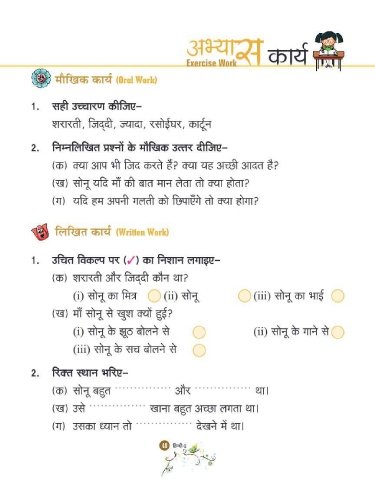 अभ्यास कार्य
Exercise Work
मौखिक कार्य (Oral Work)
1. सही उच्चारण कीजिए–
शरारती, जिद्दी, ज्यादा, रसोईघर, कार्टून
2. निम्नलिखित प्रश्नों के मौखिक उत्तर दीजिए–
(क) क्या आप भी जिद करते हैं? क्या यह अच्छी आदत है?
(ख) सोनू यदि माँ की बात मान लेता तो क्या होता?
(ग) यदि हम अपनी गलती को छिपाएँगे तो क्या होगा?
लिखित कार्य (Written Work)
1. उचित विकल्प पर (✓) का निशान लगाइए–
(क) शरारती और जिद्दी कौन था?
(i) सोनू का मित्र (ii) सोनू (iii) सोनू का भाई
(ख) माँ सोनू से खुश क्यों हुई?
(i) सोनू के झूठ बोलने से (ii) सोनू के गाने से
(iii) सोनू के सच बोलने से
2. रिक्त स्थान भरिए–
(क) सोनू बहुत ................ और ................ था।
(ख) उसे ................ खाना बहुत अच्छा लगता था।
(ग) उसका ध्यान तो ................ देखने में था।